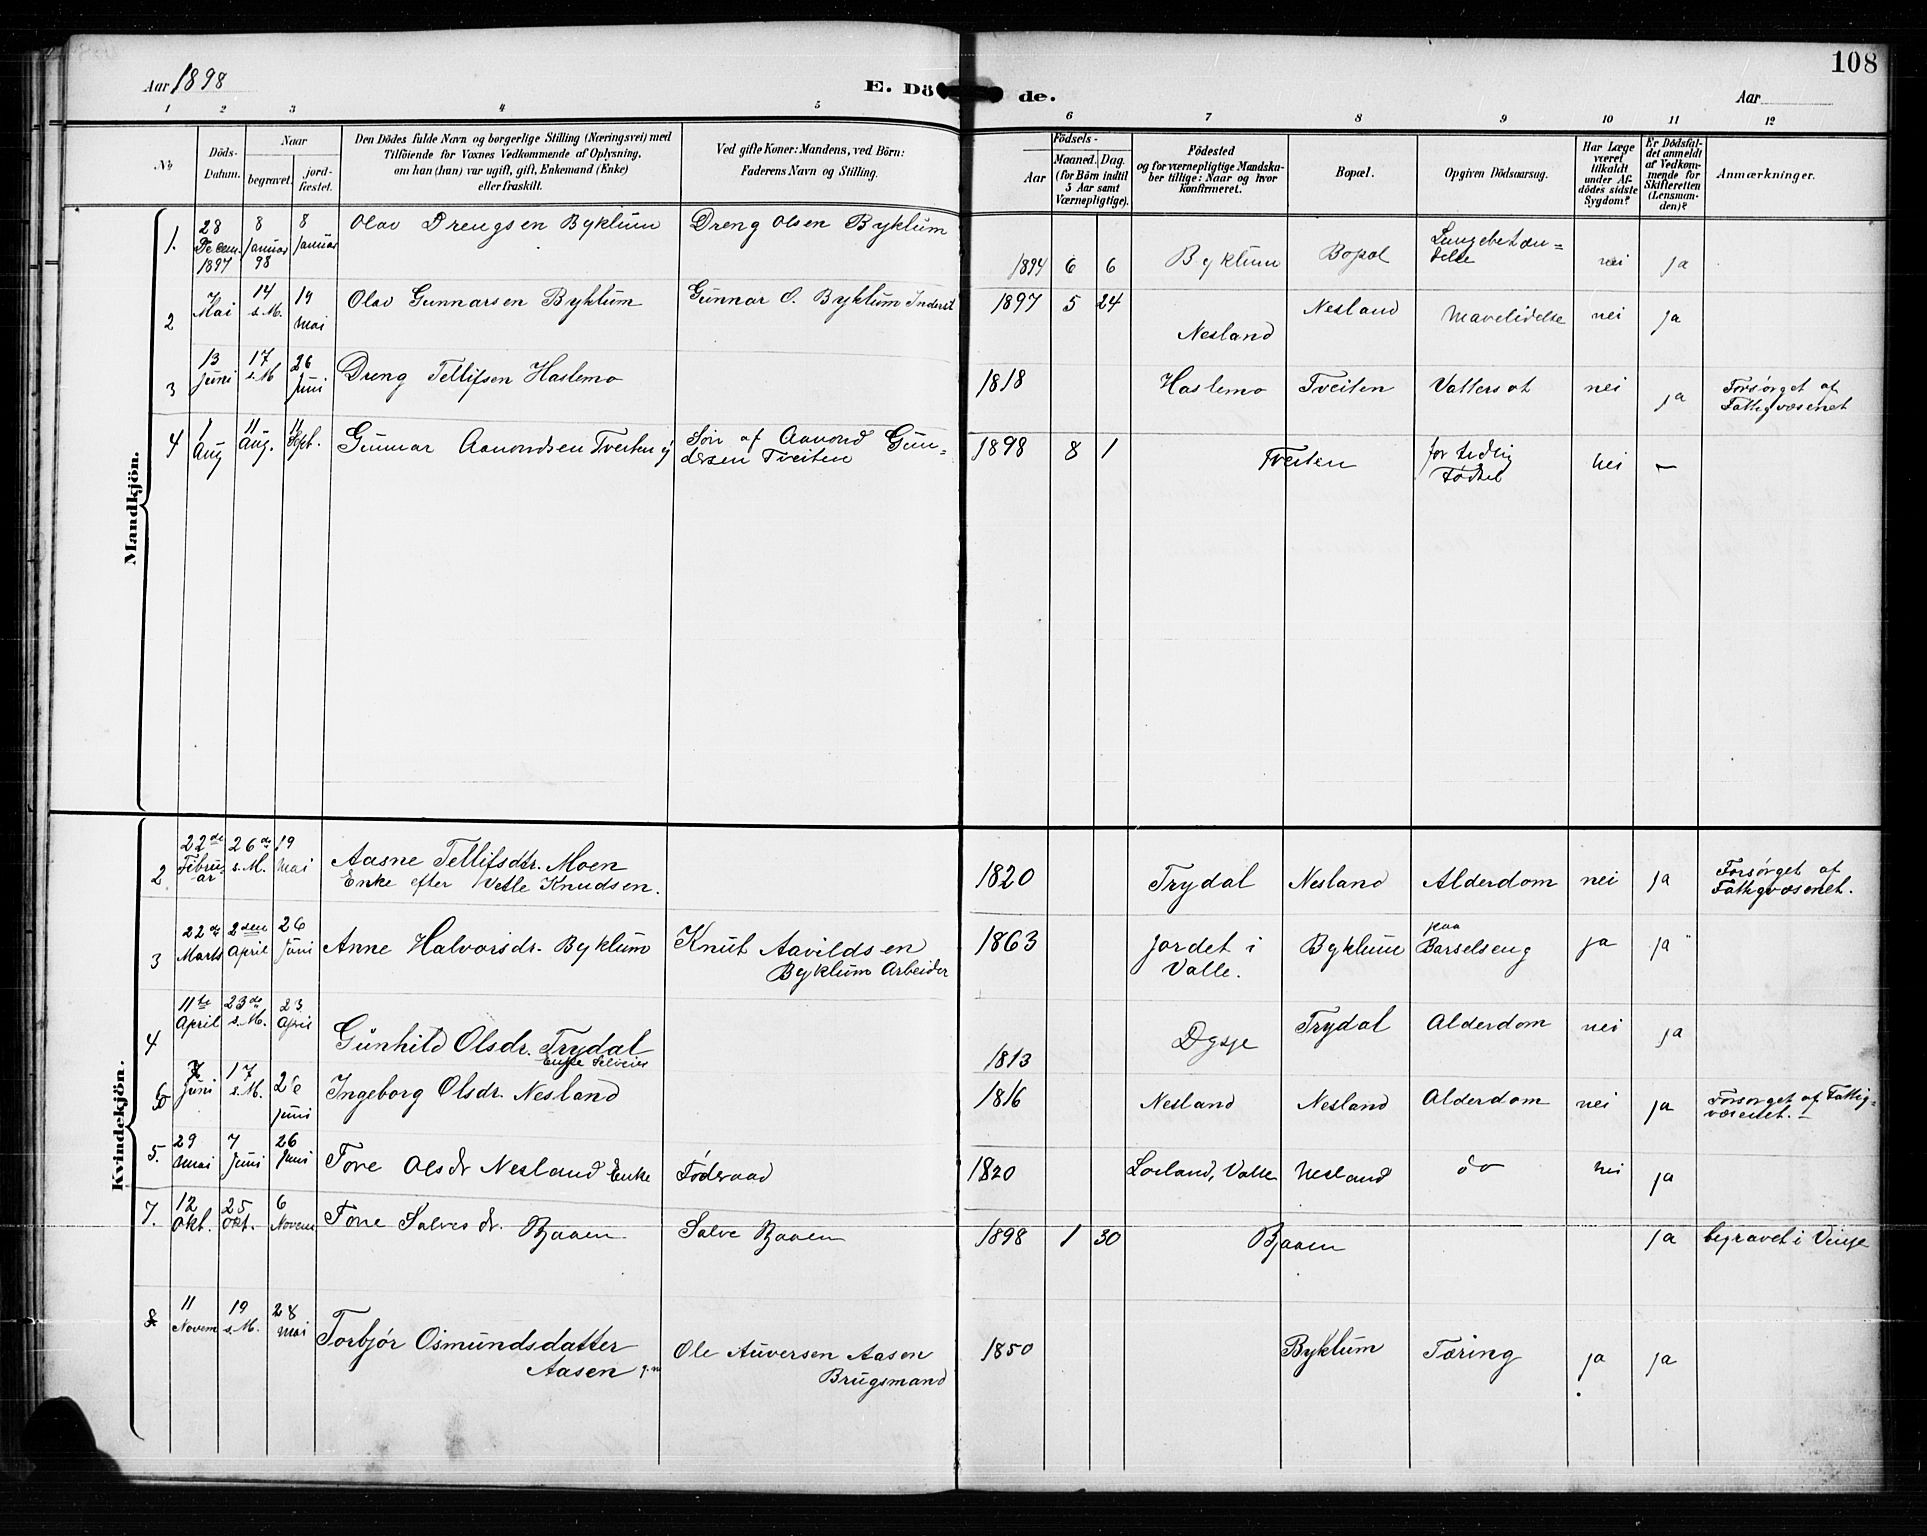 Aar 1898
E. Dö
de.
108
Aar
1 2 3 4 5 6 7 8 9 10 11 12
No
Döds-Datum.
Naar
begravet.
jord-fæstet.
Den Dödes fulde Navn og borgerlige Stilling (Næringsvei) med
Tilföiende for Voxnes Vedkommende af Oplysning,
om han (hun) var ugift, gift, Enkemand (Enke)
eller fraskilt.
Ved gifte Koner: Mandens, ved Börn:
Faderens Navn og Stilling.
Födsels-
Aar
Maaned.
Dag.
(for Börn indtil
5 Aar samt
Værnepligtige).
Födested
og for værnepligtige Mandska-
ber tillige: Naar og hvor
konfirmeret.
Bopæl.
Opgiven Dödsaarsag.
Har Læge
været
tilkaldt
under Af-
dödes sidste
Sygdom?
Er Dödsfal-
det anmeldt
af Vedkom-
mende for
Skifteretten
(Lensman-
den)?
Anmærkninger.
Mandkjön.
1. 28 Decem. 1897 8 Januar 98 8 Januar Olav Drengsen Byklum Dreng Olsen Byklum 1894 6 6 Byklum Bopæl Lungebetæn=
delse nei ja
2 7 Mai 14 s. M. 19 Mai Olav Gunnarsen Byklum Gunnar O. Byklum 1897 5 24 Nesland Nesland Mavelidelse nei ja
3 13 Juni 17 s. M 26 Juni Dreng Tellifsen Haslemo 1818 Haslemo Tveiten Vattersot nei ja Forsørget af
Fattigvæsenet
4 1 Aug 11 Aug. 11 Sept. Gunnar Aamondsen Tveiten Søn af Aamond Gun=
dersen Tveiten 1898 8 1 Tveiten for tidlig
Fødsel nei —
Kvindekjön.
2 22de Februar 26de s. M. 19 Mai Aasne Tellifsdtr. Moen
Enke efter Vetle Knudsen. 1820 Trydal Nesland Alderdom nei ja Forsørget af
Fattigvæsenet.
3 22de Marts 2den April 26 Juni Anne Halvorsdr. Byklum Knut Aavildsen
Byklum Arbeider 1863 Jordet i
Valle. Byklum paa
Barselseng ja ja
4 11te April 23de s. M. 23 April Gunhild Olsdr. Trydal
Enke Selveier 1813 Dysje Trydal Alderdom nei ja
6 7 Juni 17 s. M. 26 Juni Ingeborg Olsdr. Nesland 1816 Nesland Nesland Alderdom nei ja Forsørget af Fattig=
væsenet.
5. 29 Mai 7 Juni 26 Juni Tore Olsdr Nesland Enke Føderaad 1820 Valle Nesland do nei ja
7. 12 Okt. 25 Okt. 6 Novem Tone Salvesdr. Bjaaen Salve Bjaaen 1898 1 30 Bjaaen ja begravet i Vinje
8 11 Novem 19 s. M. 28 Mai Torbjør Osmundsdatter
Aasen Ole Auversen Aasen
Brugsmand 1850 Byklum Tæring ja ja